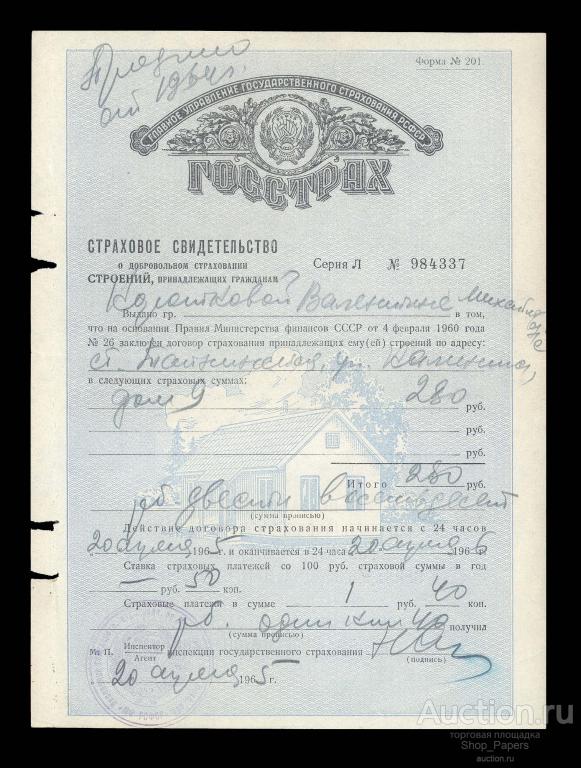 от 1964г.
Форма № 201.
ГЛАВНОЕ УПРАВЛЕНИЕ ГОСУДАРСТВЕННОГО СТРАХОВАНИЯ РСФСР
ГОССТРАХ
СТРАХОВОЕ СВИДЕТЕЛЬСТВО
О ДОБРОВОЛЬНОМ СТРАХОВАНИИ
СТРОЕНИЙ, ПРИНАДЛЕЖАЩИХ ГРАЖДАНАМ
Серия Л № 984337
Валентине
Выдано гр. в том,
что на основании Правил Министерства финансов СССР от 4 февраля 1960 года
№ 26 заключен договор страхования принадлежащих ему(ей) строений по адресу:
ст. ул. Калинина,
в следующих страховых суммах:
дом 9 280 руб.
руб.
руб.
Итого 280 руб.
рб двести восемьдесят
(сумма прописью)
Действие договора страхования начинается с 24 часов
20 апреля 1965 г. и оканчивается в 24 часа 20 апреля 1966 г.
Ставка страховых платежей со 100 руб. страховой суммы в год
— руб. 50 коп.
Страховые платежи в сумме 1 40 коп.
рб. один коп 40 получил
(сумма прописью)
М. П. Инспектор
Агент инспекции государственного страхования
(подпись)
20 апреля 1965 г.
Auction.ru
торговая площадка
Shop_Papers
auction.ru